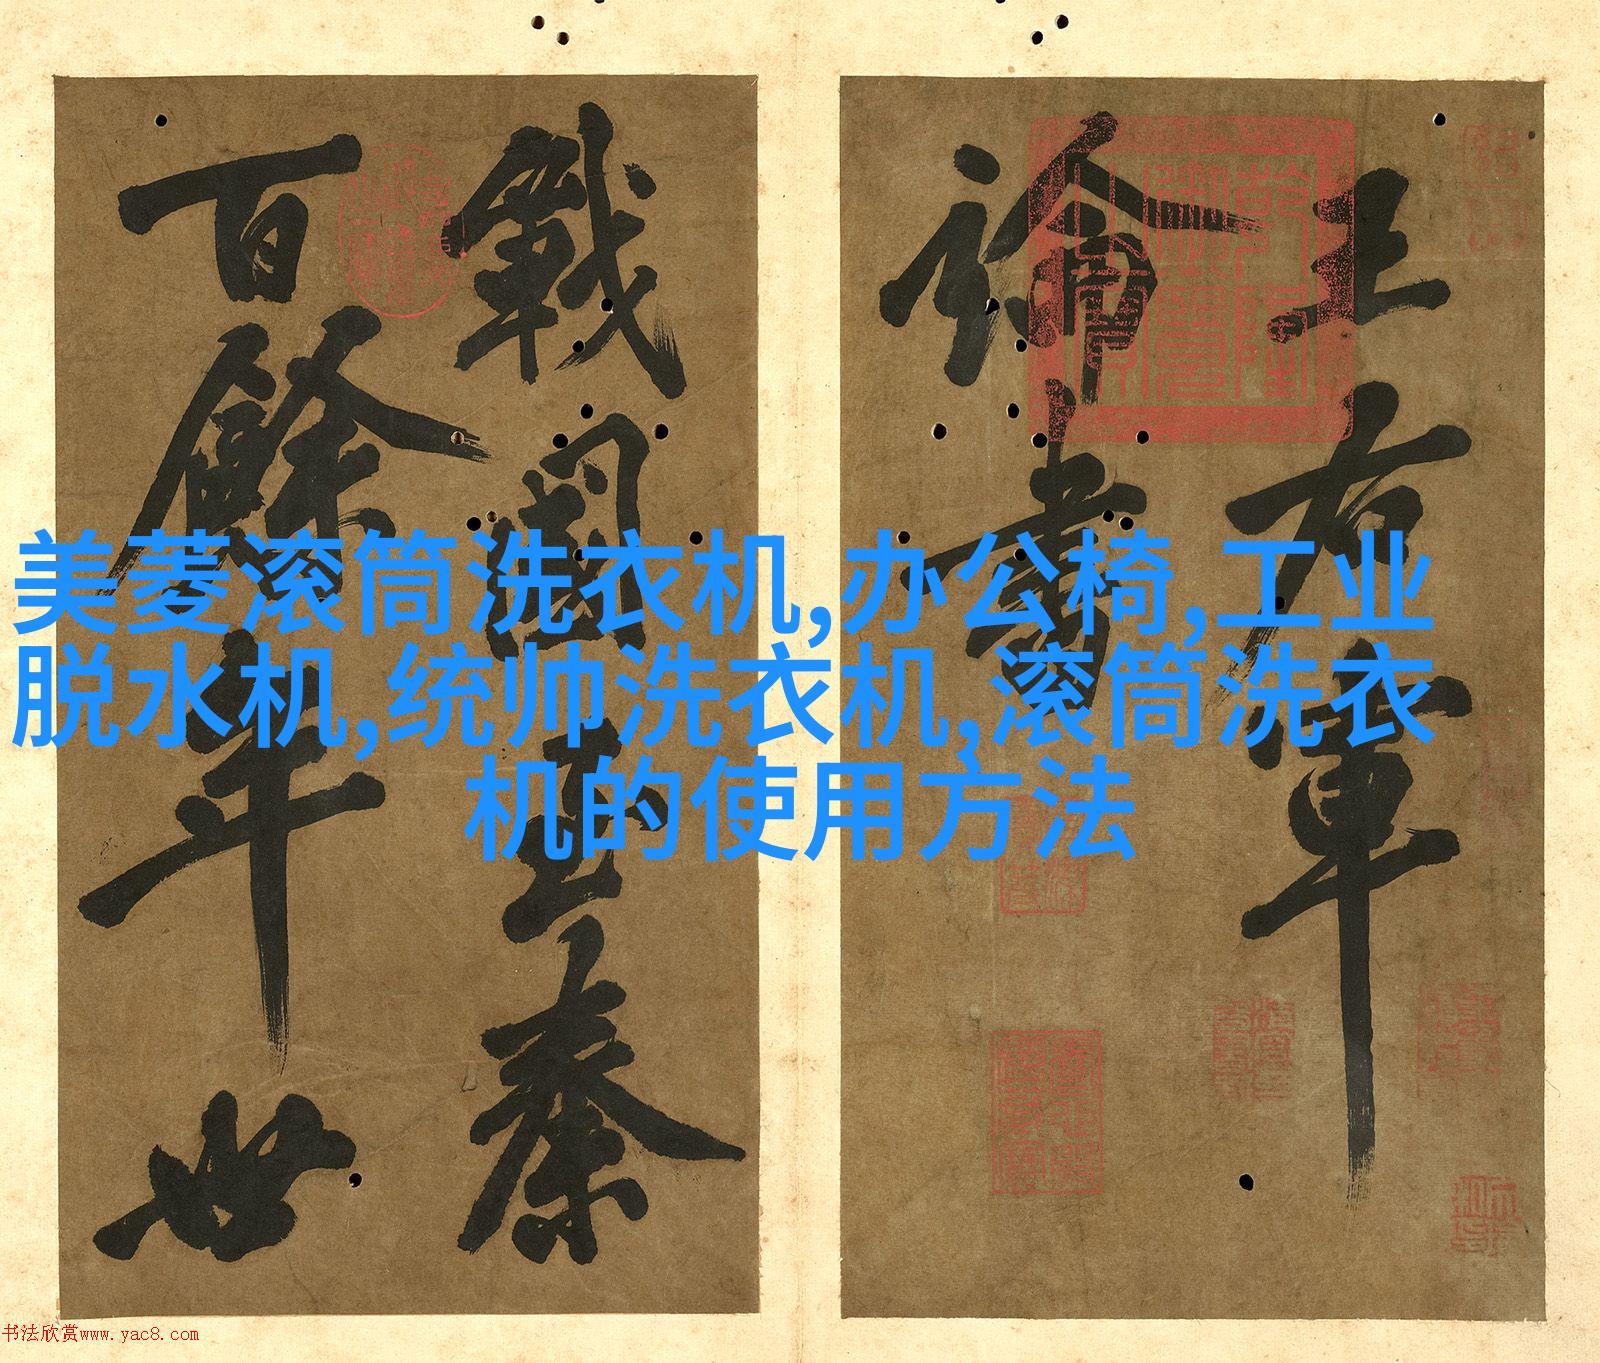 王右軍
論書
戰國至秦
百餘年世
美菱滚筒洗衣机,办公椅,工业
脱水机,统帅洗衣机,滚筒洗衣
机的使用方法
乾隆御覽之寶
书法欣赏www.yac8.com